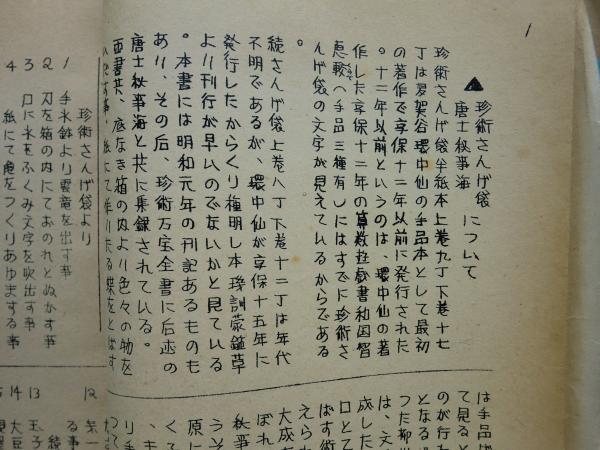 1
▲珍術さんげ袋
唐士秘事海
について
珍術さんげ袋半紙本上巻九丁下巻十七
丁は多賀谷環中仙の手品本として最初
の著作で享保十二年以前に発行された
。十二年以前というのは、環中仙の著
作した享保十二年の算数遊戯書和国智
恵較へ手品三種有しにはすでに珍術さ
んげ袋の文字が見えているからである
。
続さんげ袋上巻八丁下巻十二丁は年代
不明であるが、環中仙が享保十五年に
発行したからくり種明し本璣訓蒙鑑草
より刊行が早いのでないかと見ている
。本書には明和元年の刊記あるものも
あり、その后、珍術万宝全書に后述の
唐士秘事海と共に集録されている。
両書共、底なき箱の内より色々の物を
は手品
て見ると
のが行わ
となる
った柳
は、文
成した
口とて
ばす術
えられ
大成
ぼれ
うそ
秋事
原に
くて
珍術さんげ袋より
1 手水鉢より雲竜を出す事
2 刀を箱の内にておのれとぬかす事
3 口に水をふくみ文字を吹出す事
4 紙にて亀をつくりあゆまする事
12
13
14